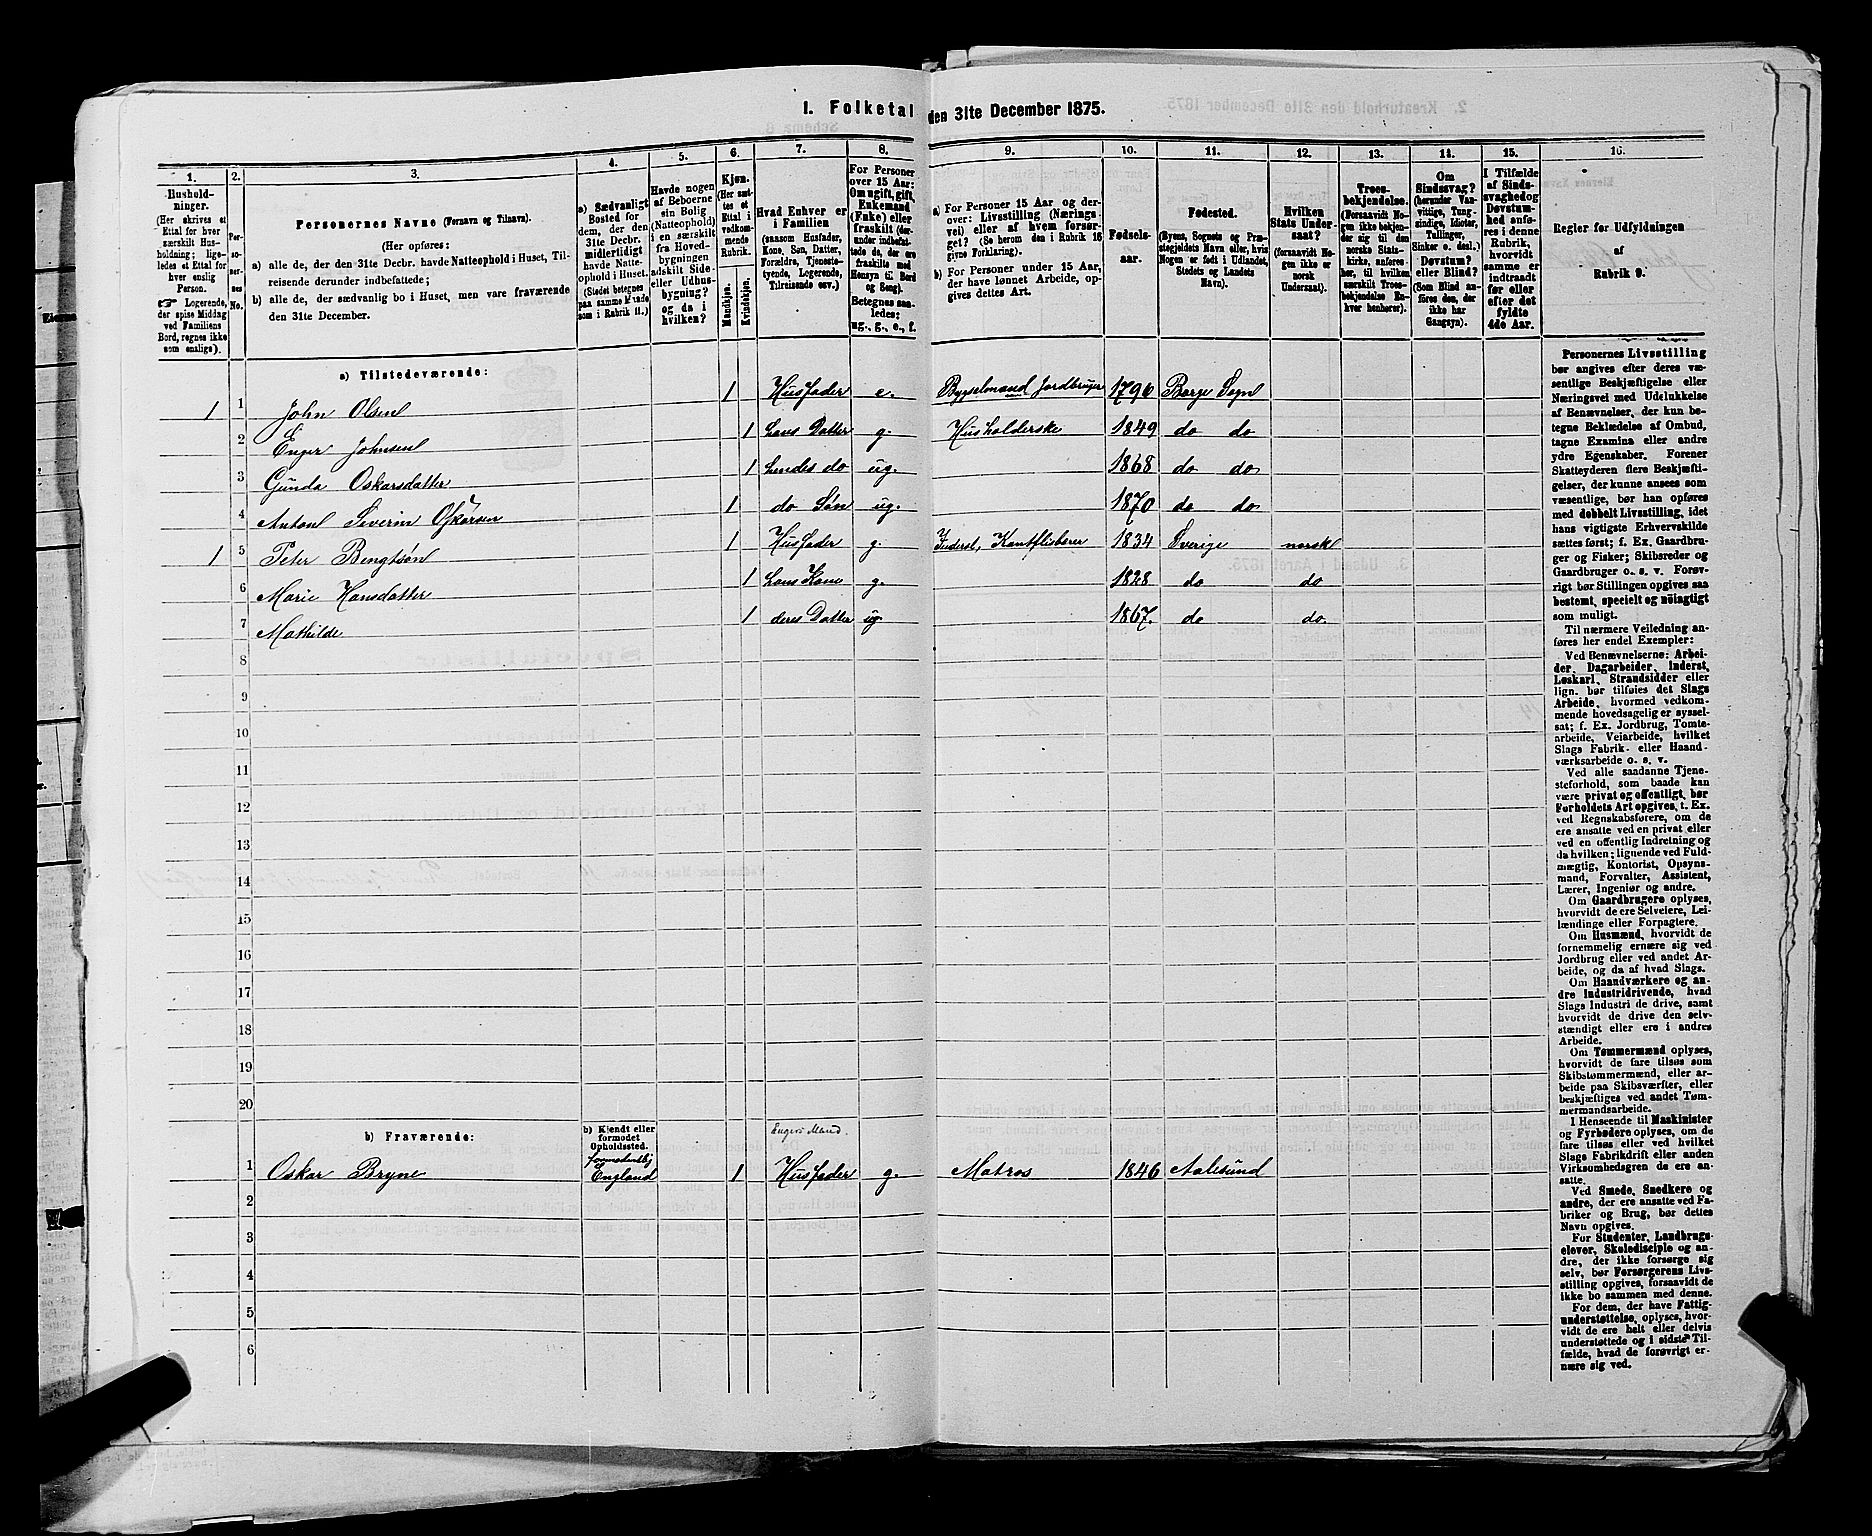 1. Folketal den 31te December 1875.
1. 2. 3. 4. 5. 6. 7. 8. 9. 10. 11. 12. 13. 14. 15. 16.
Hushold-
ninger.
(Her skrives et
Ettal for hver
særskilt Hus-
holdning; lige-
ledes et Ettal for
hver enslig
Person.
☞ Logerende,
der spise Middag
ved Familiens
Bord, regnes ikke
som enslige).
Per-
so-
ner-
nes
No.
Personernes Navne (Fornavn og Tilnavn).
(Her opføres:
a) alle de, der den 31te Decbr. havde Natteophold i Huset, Til-
reisende derunder indbefattede;
b) alle de, der sædvanlig bo i Huset, men vare fraværende
den 31te December.
a) Sædvanligt
Bosted for
dem, der den
31te Decbr.
midlertidigt
havde Natte-
ophold i Huset.
(Stedet betegnes
paa samme Maade
som i Rubrik 11.)
Havde nogen
af Beboerne
sin Bolig
(Natteophold)
i en særskilt
fra Hoved-
bygningen
adskilt Side-
eller Udhus-
bygning?
og da i
hvilken?
Kjøn.
(Her sæt-
tes et
Ettal i
vedkom-
mende
Rubrik.
Mandkjøn.
Kvindekjøn.
Hvad Enhver er
i Familien
(saasom Husfader,
Kone, Søn, Datter,
Forældre, Tjeneste-
tyende, Logerende,
Tilreisende osv.)
For Personer
over 15 Aar:
Om ugift, gift,
Enkemand
(Enke) eller
fraskilt (der-
under indbefat-
tede de, der ere
fraskilte med
Hensyn til Bord
og Seng).
Betegnes saa-
ledes:
ug., g., e., f.
a) For Personer 15 Aar og der-
over: Livsstilling (Nærings-
vei) eller af hvem forsør-
get? (Se herom den i Rubrik 16
givne Forklaring).
b) For Personer under 15 Aar,
der have lønnet Arbeide, op-
gives dettes Art.
Fødsels-
aar.
Fødested.
(Byens, Sognets og Præ-
stegjeldets Navn eller, hvis
Nogen er født i Udlandet,
Stedets og Landets
Navn).
Hvilken
Stats Under-
saat?
(forsaavidt No-
gen ikke er
norsk
Undersaat).
Troes-
bekjendelse.
(Forsaavidt No-
gen ikke bekjen-
der sig til den
norske Stats-
kirke, anføres
her, til hvilken
særskilt Troes-
bekjendelse En-
hver henhører).
Om
Sindssvag?
(herunder Van-
vittige, Tung-
sindige, Idioter,
Tullinger,
Sinker o. desl.)
Døvstum?
eller Blind?
(Som Blind an-
føres den, der
ikke har
Gangsyn).
I Tilfælde
af Sinds-
svaghed og
Døvstum-
hed anfø-
res i denne
Rubrik,
hvorvidt
samme er
indtraadt
før eller
efter det
fyldte
4de Aar.
Regler for Udfyldningen
af
Rubrik 9.
a) Tilstedeværende:
1 1 John Olsen 1 Husfader e. Bygselmand Jordbruger 1796 Borge Sogn
2 Enger Johnsen 1 hans Datter g. Husholderske 1849 do do
3 Gunda Oskarsdatter 1 hendes do ug. 1868 do do
4 Anton Severin Oskarsen 1 do Søn ug. 1870 do do
1 5 Peter Bengtsøn 1 Husfader g. Inderst, 1834 Sverige norsk
6 Marie Hansdatter 1 hans Kone g. 1828 do do
7 Mathilde 1 deres Datter ug. 1867. do do.
8
9
10
11
12
13
14
15
16
17
18
19
20
b) Fraværende:
b) Kjendt eller
formodet
Opholdssted.
Engers Mand.
1 Oskar Bryne formodentlig England 1 Husfader g. Matros 1846 Aalesund
2
3
4
5
6
Personernes Livsstilling
bør angives efter deres væ-
sentlige Beskjæftigelse eller
Næringsvei med Udelukkelse
af Benævnelser, der kun be-
tegne Beklædelse af Ombud,
tagne Examina eller andre
ydre Egenskaber. Forener
Skatteyderen flere Beskjæfti-
gelser, der kunne ansees som
væsentlige, bør han opføres
med dobbelt Livsstilling, idet
hans vigtigste Erhvervskilde
sættes først; f. Ex. Gaardbru-
ger og Fisker; Skibsreder og
Gaardbruger o. s. v. Forøv-
rigt bør Stillingen opgives saa
bestemt, specielt og nøiagtigt
som muligt.
Til nærmere Veiledning an-
føres her endel Exempler:
Ved Benævnelserne: Arbei-
der, Dagarbeider, Inderst,
Løskarl, Strandsidder eller
lign. bør tilføies det Slags
Arbeide, hvormed vedkom-
mende hovedsagelig er syssel-
sat; f. Ex. Jordbrug, Tomte-
arbeide, Veiarbeide, hvilket
Slags Fabrik- eller Haand-
værksarbeide o. s. v.
Ved alle saadanne Tjene-
steforhold, som baade kan
være privat og offentligt, bør
Forholdets Art opgives, t. Ex.
ved Regnskabsførere, om de
ere ansatte ved en privat eller
ved en offentlig Indretning og
da hvilken; lignende ved Fuld-
mægtig, Kontorist, Opsyns-
mand, Forvalter, Assistent,
Lærer, Ingeniør og andre.
Om Gaardbrugere oplyses,
hvorvidt de ere Selveiere, Lei-
lændinge eller Forpagtere.
Om Husmænd, hvorvidt de
fornemmelig ernære sig ved
Jordbrug eller ved andet Ar-
beide, og da af hvad Slags.
Om Haandværkere og an-
dre Industridrivende, hvad
Slags Industri de drive, samt
hvorvidt de drive den selv-
stændigt eller ere i andres
Arbeide.
Om Tømmermænd oplyses,
hvorvidt de fare tilsøs som
Skibstømmermænd, eller ar-
beide paa Skibsværfter, eller
beskjæftiges ved andet Tøm-
mermandsarbeide.
I Henseende til Maskinister
og Fyrbødere oplyses, om de
fare tilsøs eller ved hvilket
Slags Fabrikdrift eller anden
Virksomhedsgren de ere an-
satte.
Ved Smede, Snedkere og
andre, der ere ansatte ved Fa-
briker og Brug, bør dettes
Navn opgives.
For Studenter, Landbrugs-
elever, Skoledisciple og an-
dre, der ikke forsørge sig
selv, bør Forsørgerens Livs-
stilling opgives, forsaavidt de
ikke bo sammen med denne.
For dem, der have Fattig-
understøttelse, oplyses, hvor-
vidt de ere helt eller delvis
understøttede og i sidste Til-
fælde, hvad de forøvrigt er-
nære sig ved.